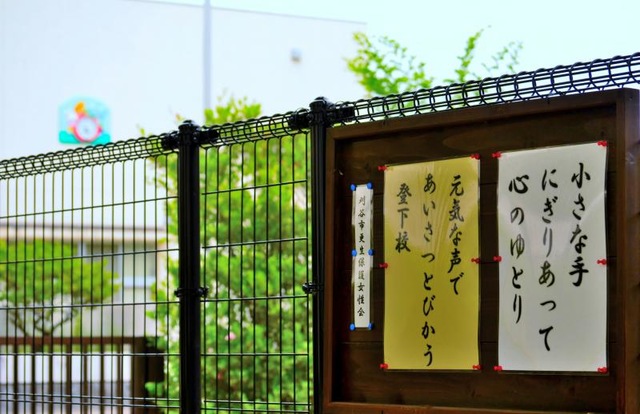 小さな手
にぎりあって
心のゆとり
元気な声で
あいさつとびかう
登下校
刈谷市更生保護女性会